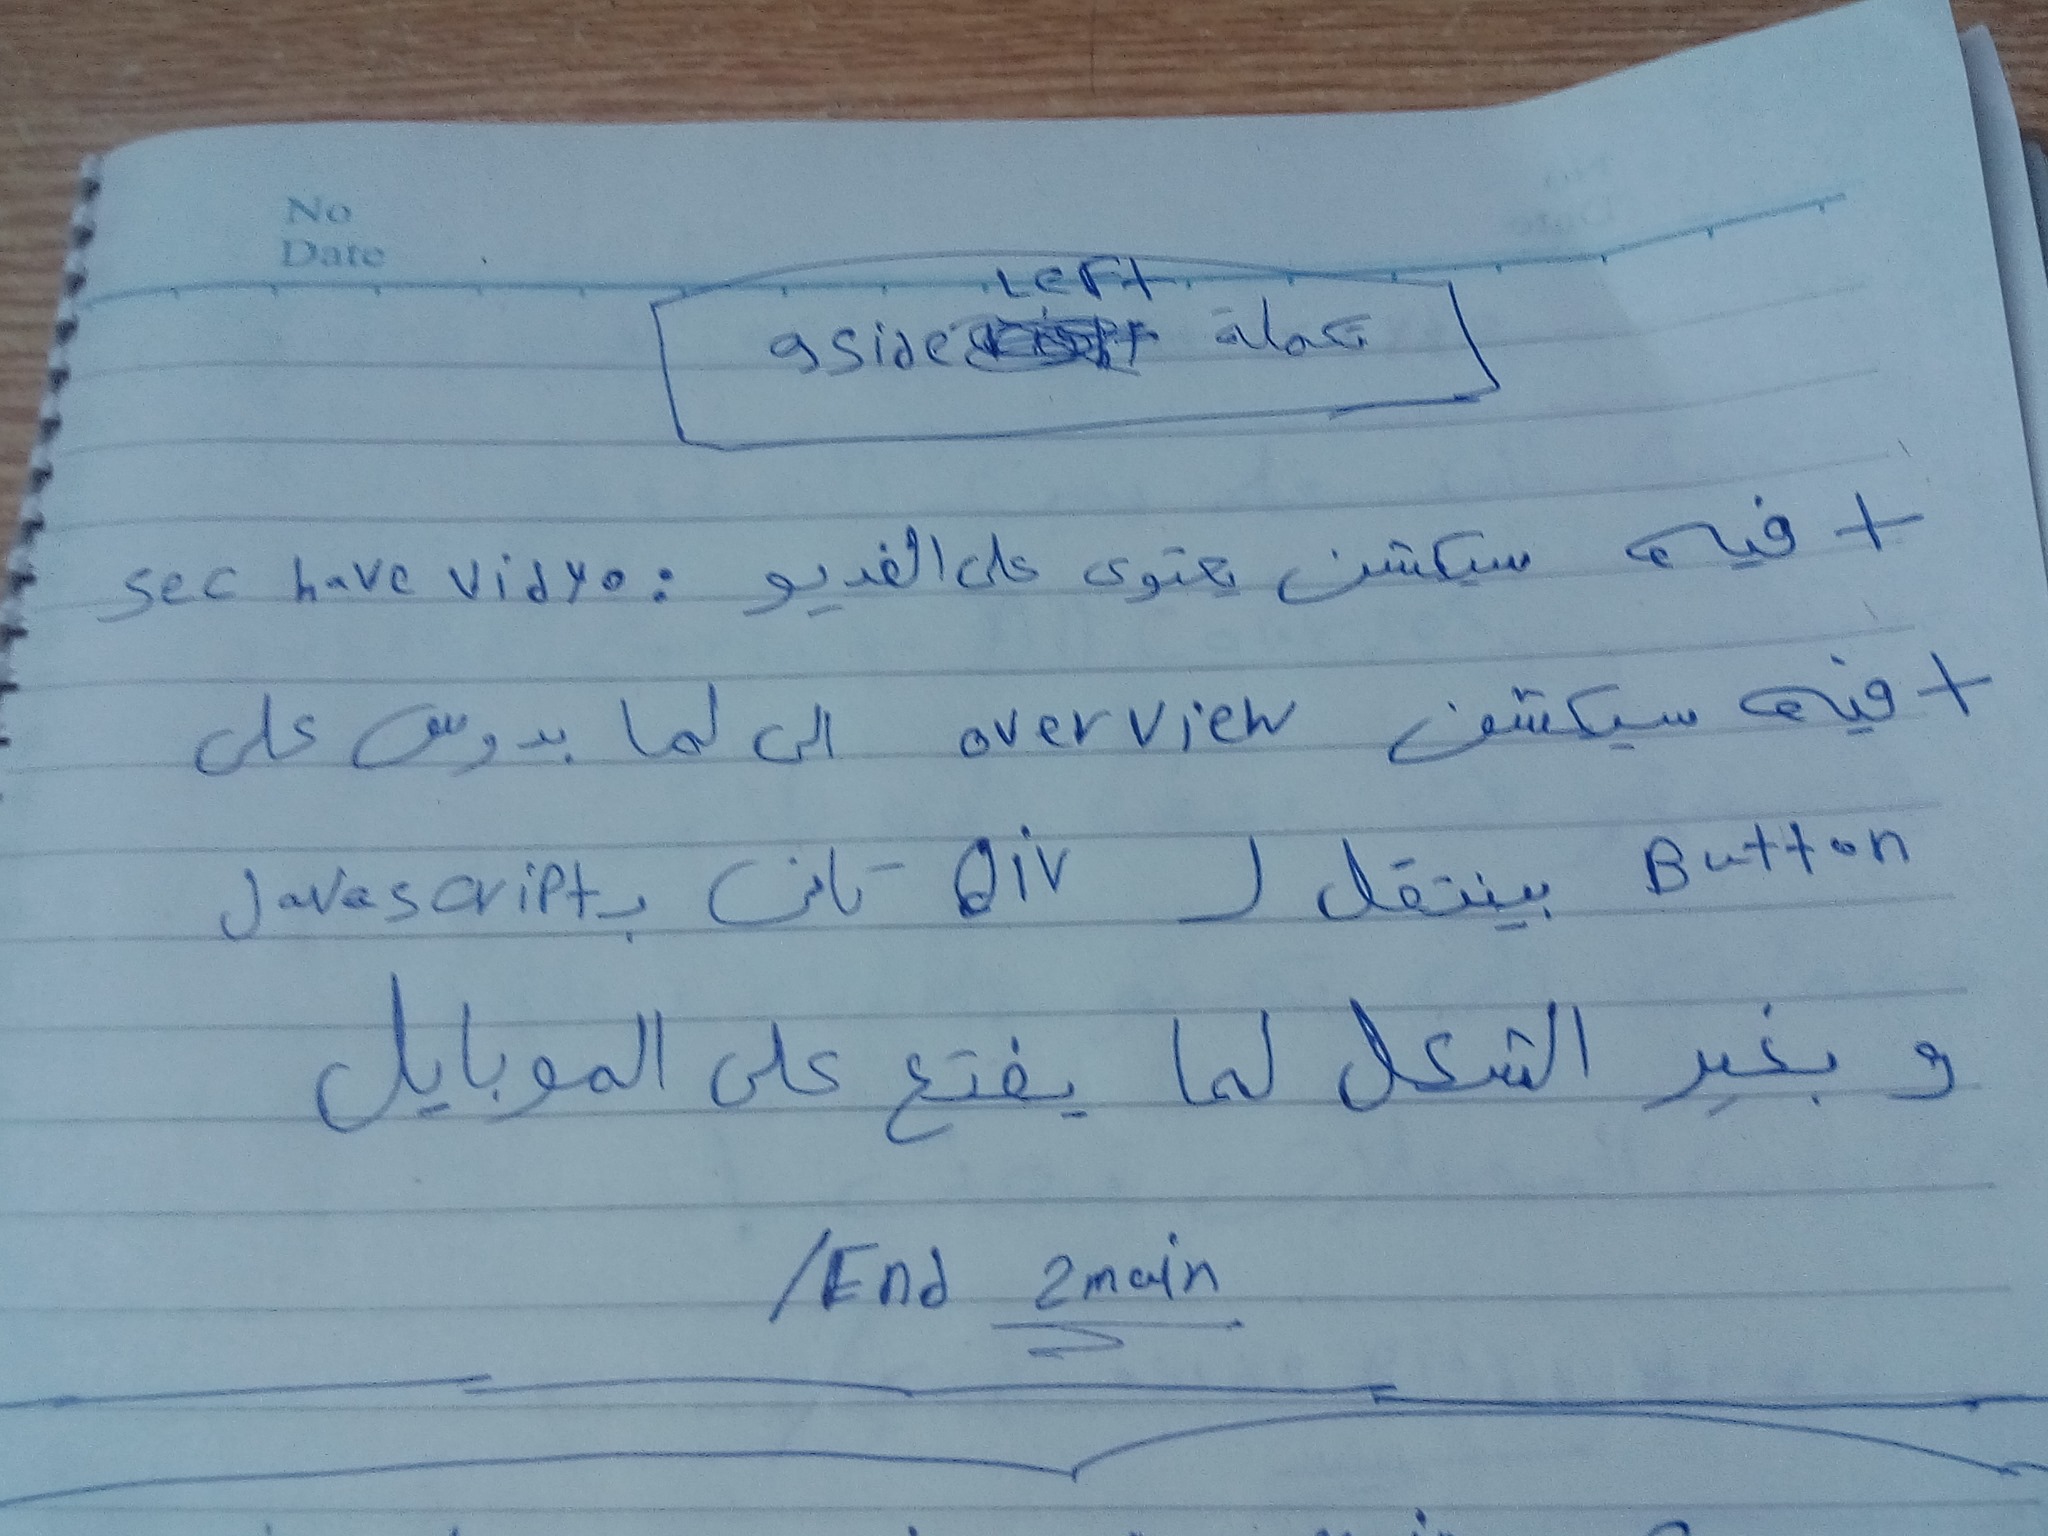 No
Date
Left
تكملة aside
+ فيه سيكشن يحتوى على الفديو : sec have vidyo
+ فيه سيكشن overview الى لما بدوس على
Button بينتقل لـ Div تانى بـ Javascript
و بغير الشكل لما يفتح على الموبايل
/End 2main